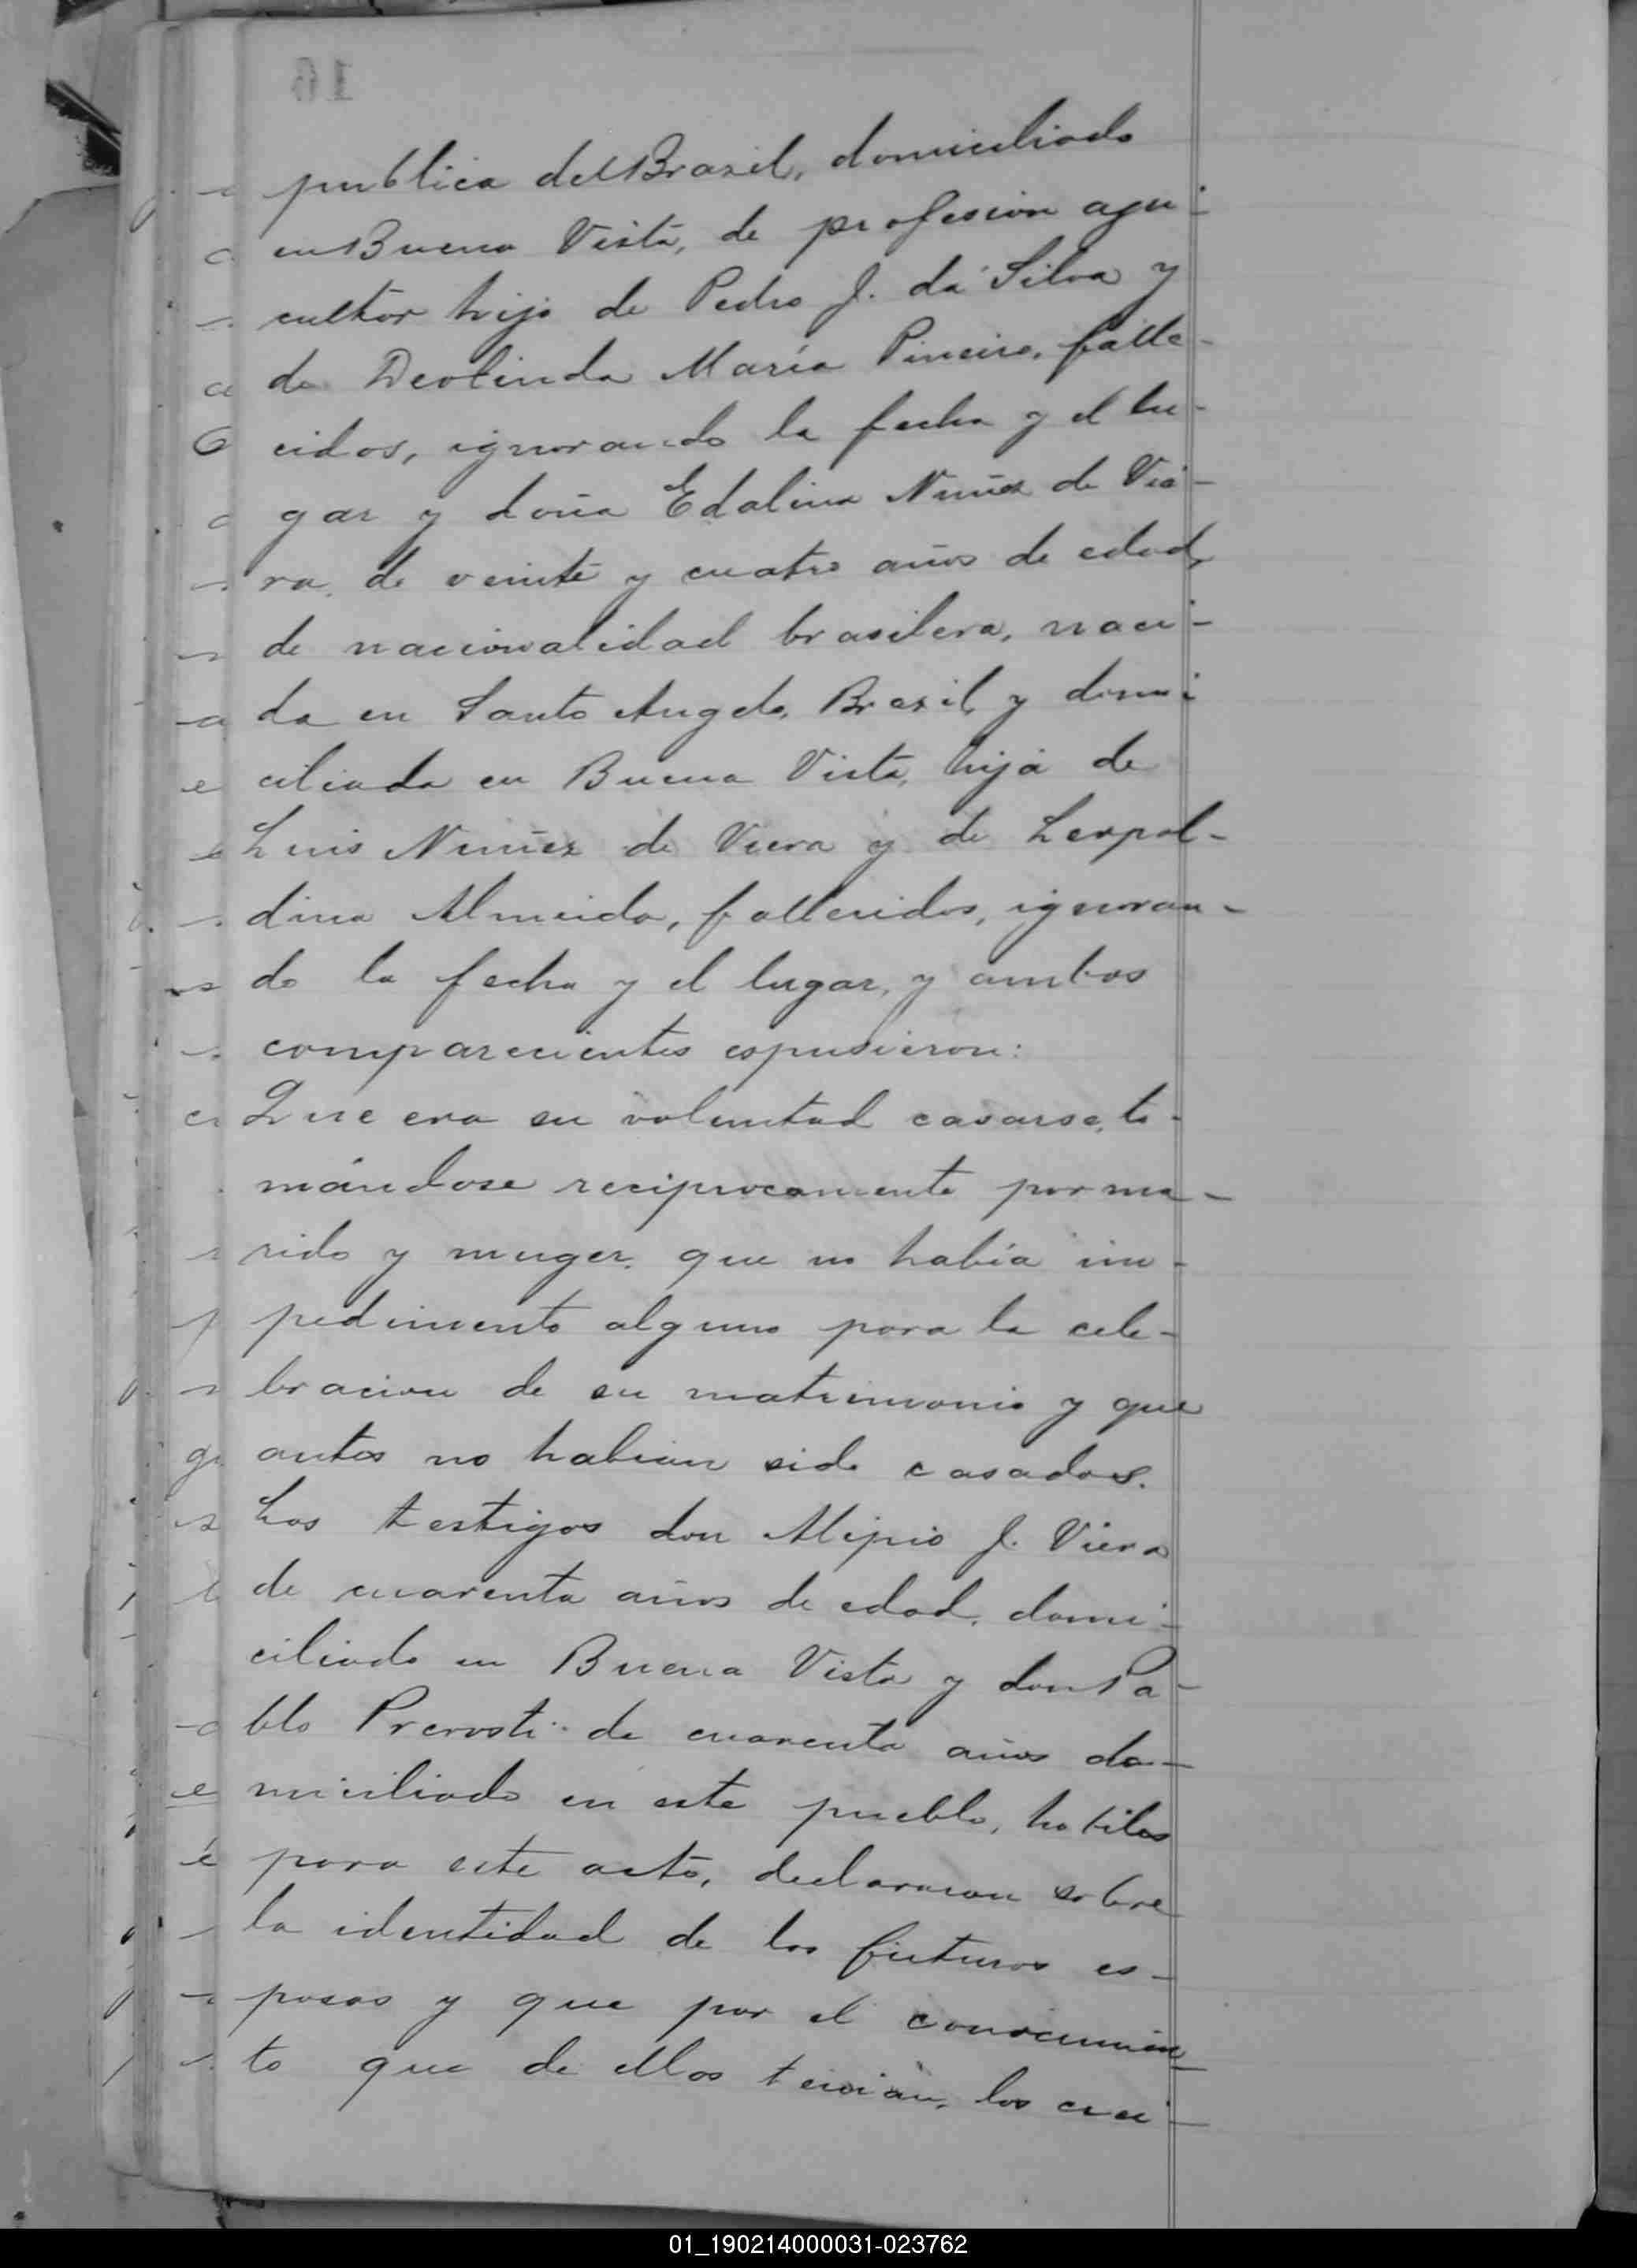 16
publica del Brazil, domiciliado
en Buena Vista, de profesion agri-
cultor hijo de Pedro J. da Silva y
de Deolinda María Pineiro, falle-
cidos, ignorando la fecha y el lu-
gar y doña Edalina Nuñez de Vie-
ra, de veinte y cuatro años de edad,
de nacionalidad brasilera, naci-
da en Santo Angelo, Brazil, y domi
ciliada en Buena Vista, hija de
Luis Nuñez de Viera y de Leopol-
dina Almeida, fallecidos, ignoran-
do la fecha y el lugar, y ambos
comparecientes espusieron:
Que era su voluntad casarse, to-
mándose reciprocamente por ma-
rido y muger, que no había im-
pedimento alguno para la cele-
bracion de su matrimonio y que
antes no habian sido casados.
Los testigos don Alipio J. Viera
de cuarenta años de edad, domi-
ciliado en Buena Vista y don Pa-
blo de cuarenta años do-
miciliado en este pueblo, habiles
para este acto, declararon sobre
la identidad de los futuros es-
posos y que por el conocimien-
to que de ellos tenian, los crei-
01_190214000031-023762